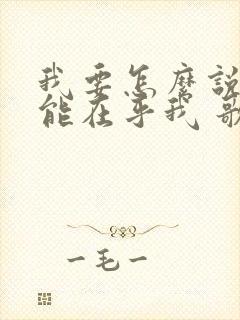 我要怎麼說
能在乎我 歌
一毛一